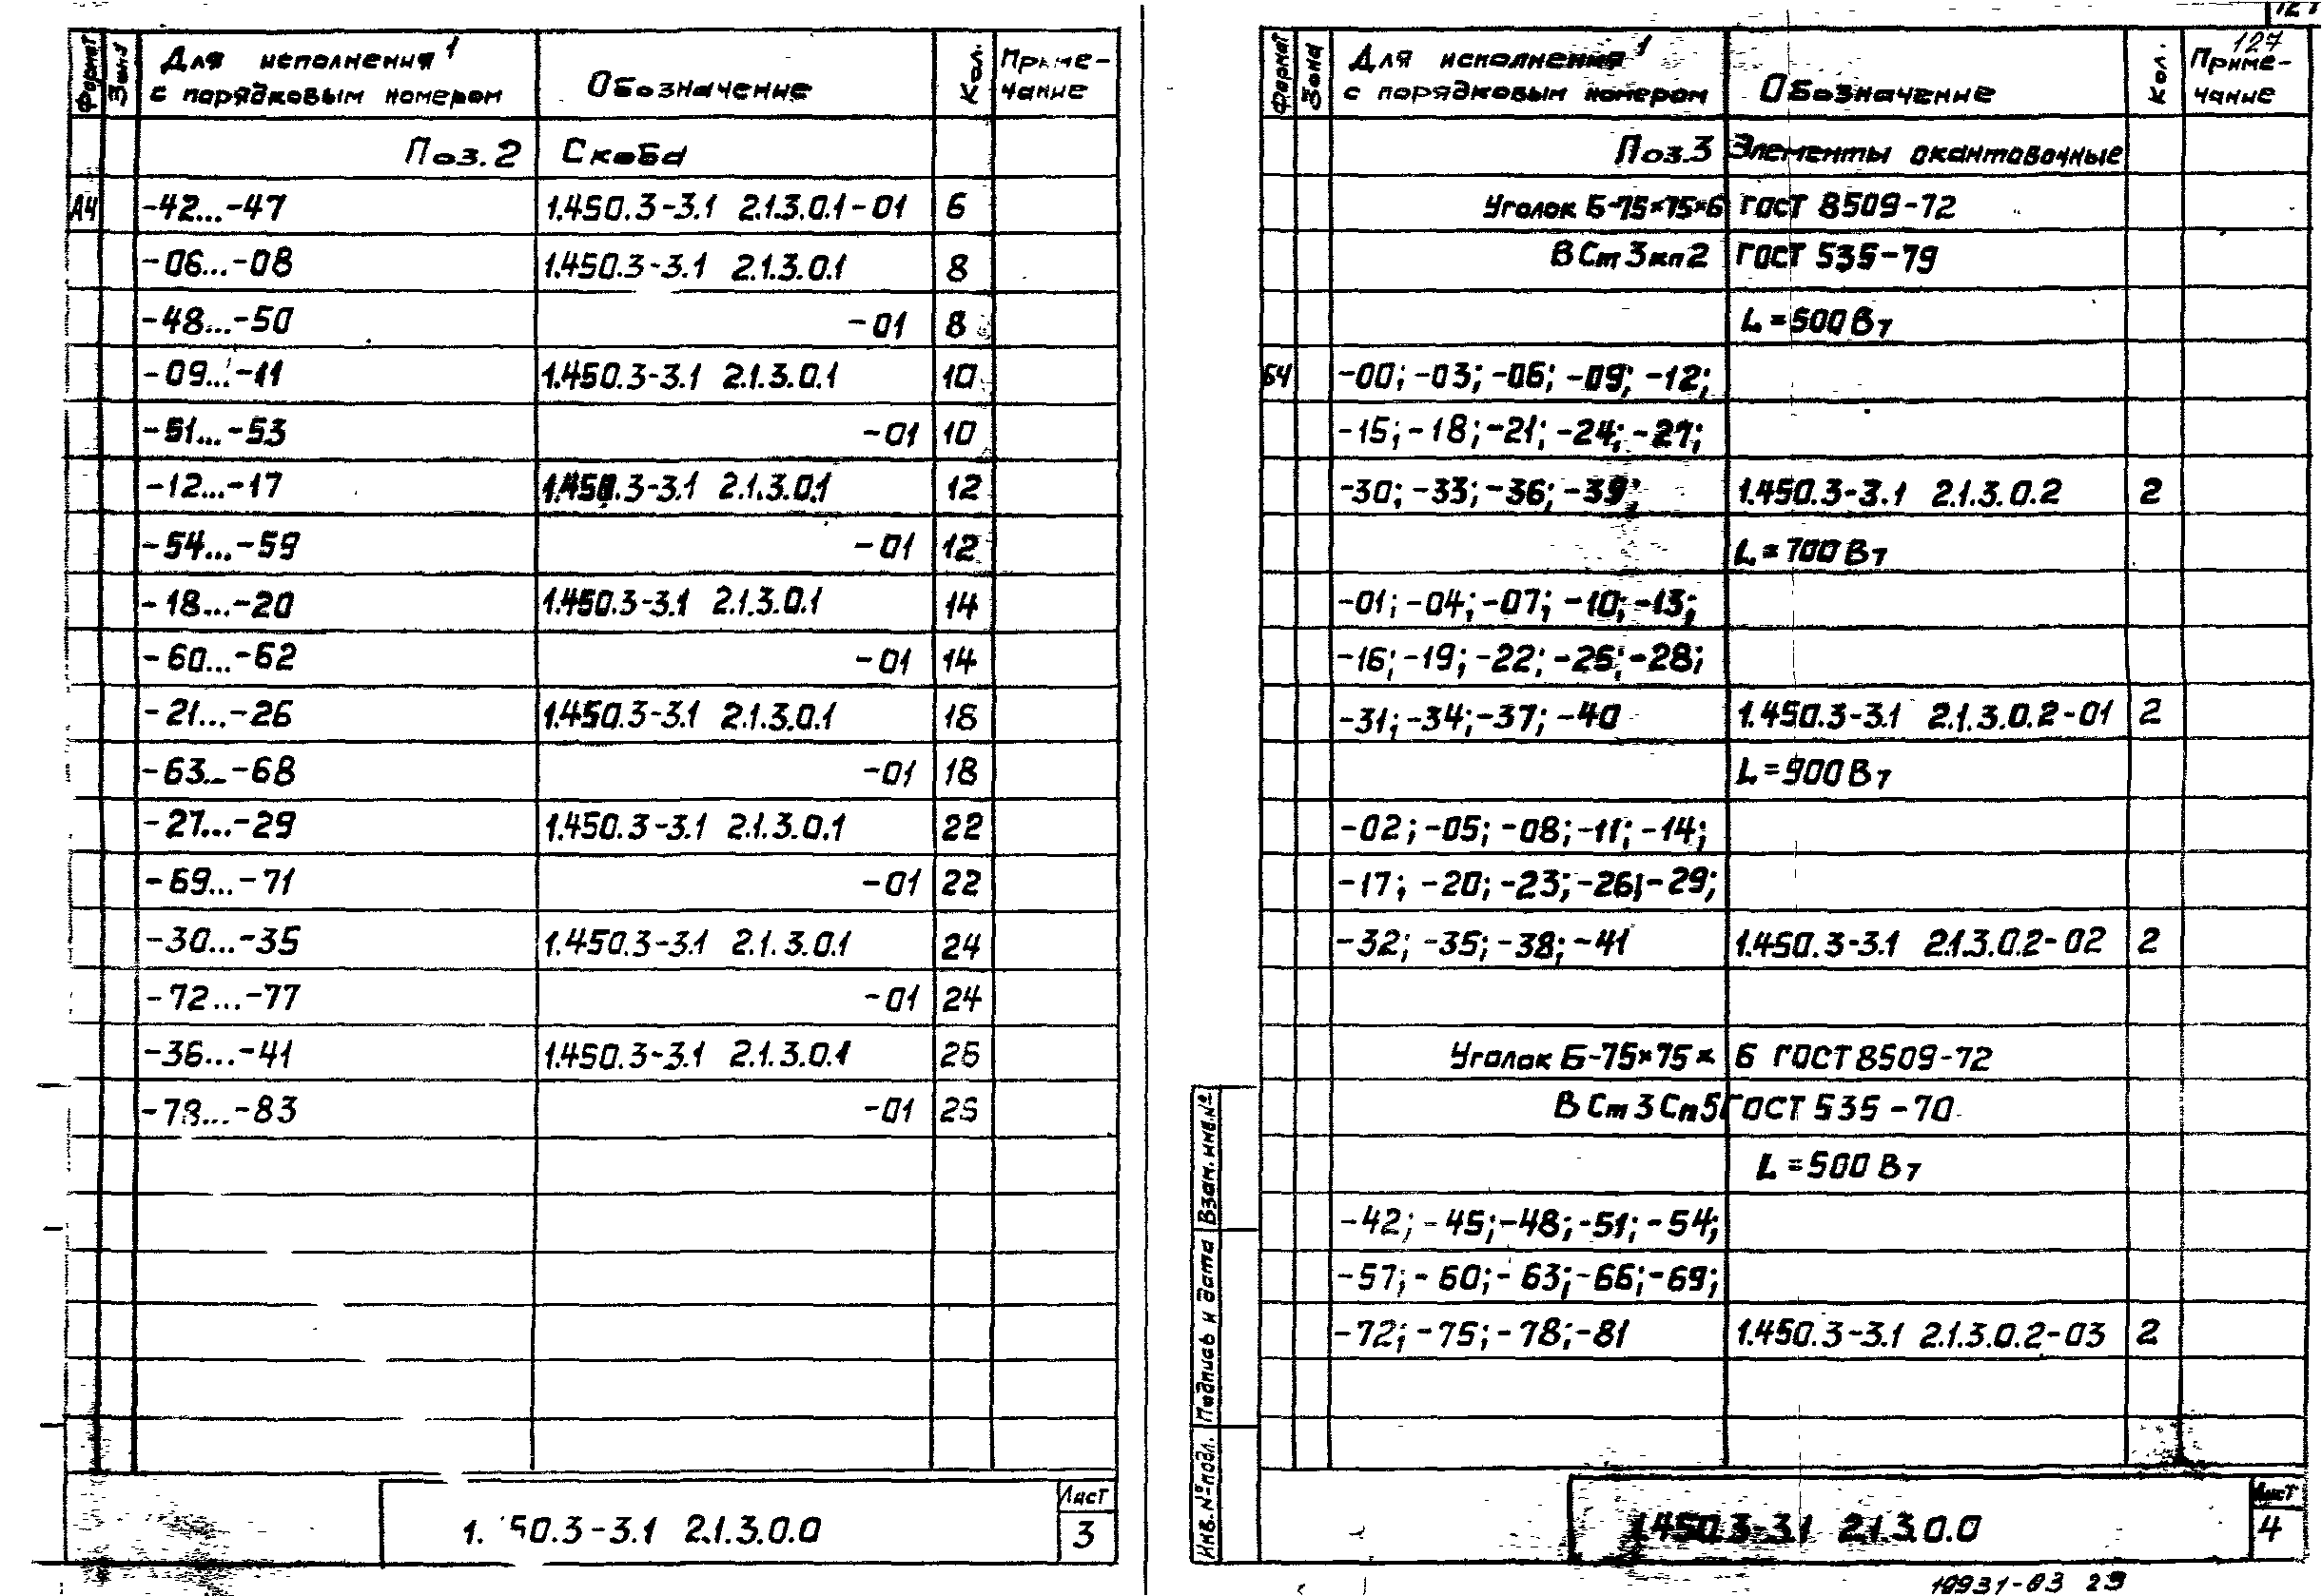 Формат Зона Для исполнения¹ с порядковым номером Обозначение Кол. Примечание
Поз.2 Скоба
А4 -42...-47 1.450.3-3.1 2.1.3.0.1-01 6
-06...-08 1.450.3-3.1 2.1.3.0.1 8
-48...-50 -01 8
-09...-11 1.450.3-3.1 2.1.3.0.1 10
-51...-53 -01 10
-12...-17 1.450.3-3.1 2.1.3.0.1 12
-54...-59 -01 12
-18...-20 1.450.3-3.1 2.1.3.0.1 14
-60...-62 -01 14
-21...-26 1.450.3-3.1 2.1.3.0.1 18
-63...-68 -01 18
-27...-29 1.450.3-3.1 2.1.3.0.1 22
-69...-71 -01 22
-30...-35 1.450.3-3.1 2.1.3.0.1 24
-72...-77 -01 24
-36...-41 1.450.3-3.1 2.1.3.0.1 26
-78...-83 -01 26
2.1.3.0.0
Лист
3
127
Формат Зона Для исполнения¹ с порядковым номером Обозначение Кол. Примечание
Поз.3 Элементы окантовочные
Уголок Б-75×75×6 ГОСТ 8509-72
ВСт3кп2 ГОСТ 535-79
L=500 Вт
БЧ -00; -03; -06; -09; -12;
-15; -18; -21; -24; -27;
-30; -33; -36; -39; 1.450.3-3.1 2.1.3.0.2 2
L=700 Вт
-01; -04; -07; -10; -13;
-16; -19; -22; -25; -28;
-31; -34; -37; -40 1.450.3-3.1 2.1.3.0.2-01 2
L=900 Вт
-02; -05; -08; -11; -14;
-17; -20; -23; -26; -29;
-32; -35; -38; -41 1.450.3-3.1 2.1.3.0.2-02 2
Уголок Б-75×75× 6 ГОСТ 8509-72
ВСт3Сп5 ГОСТ 535-70
L=500 Вт
-42; -45; -48; -51; -54;
-57; -60; -63; -66; -69;
-72; -75; -78; -81 1.450.3-3.1 2.1.3.0.2-03 2
Инв.№подл. Подпись и дата Взам.инв.№
1.450.3-3.1 2.1.3.0.0
Лист
4
19931-03 29